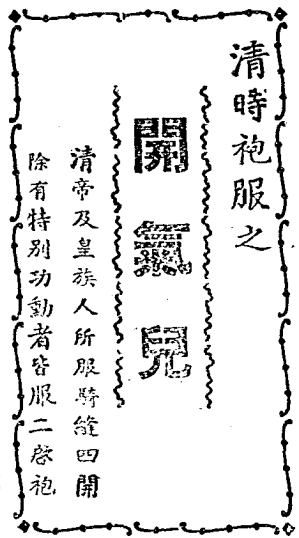 清時袍服之
開氣兒
清帝及皇族人所服騎縫四開
除有特別功勳者皆服二啓袍